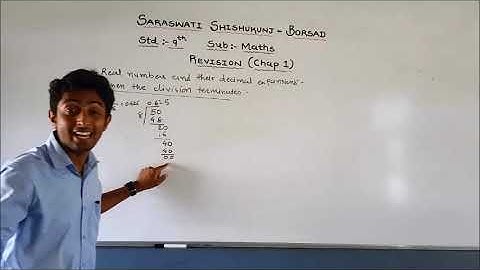 SARASWATI SHISHUKUNJ - BORSAD
Std :- 9th Sub :- Maths
REVISION (Chap 1)
Real numbers and their decimal expansions -
when the division terminates -
8 50
48
20
16
40
40
00